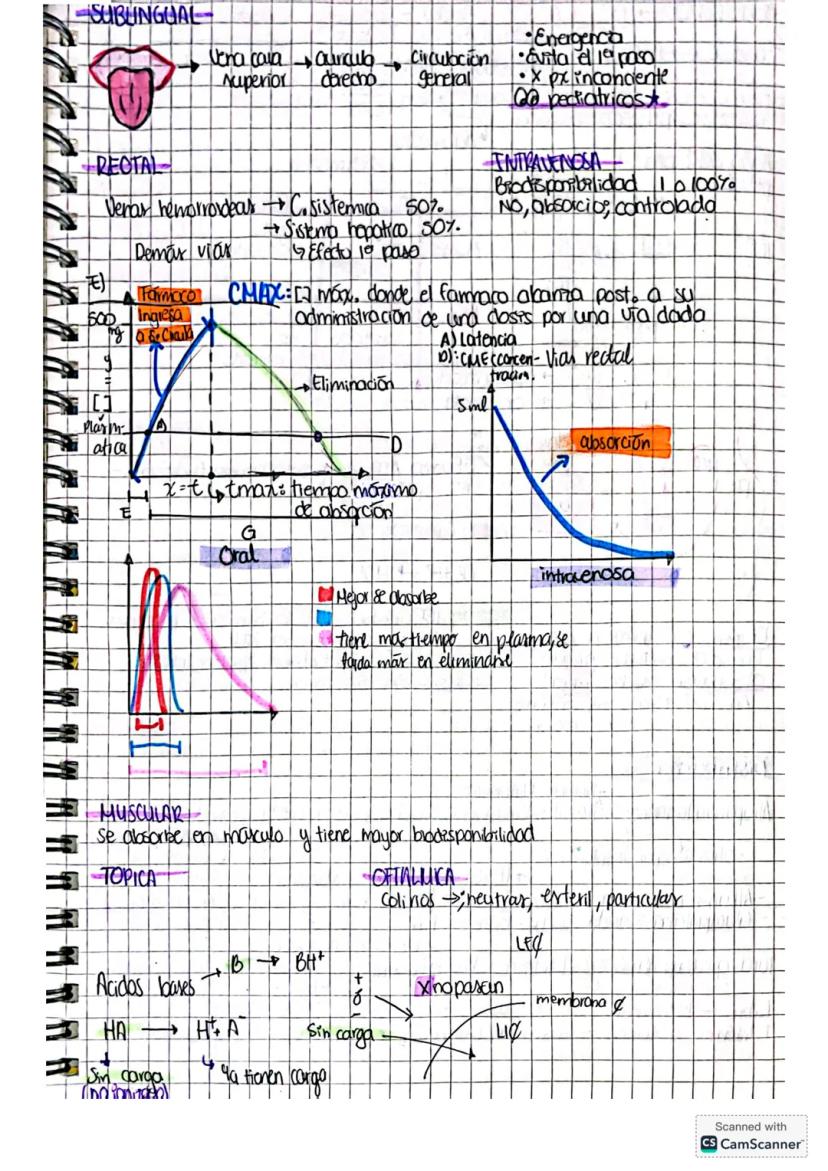 SUBLINGUAL
Vena cava superior → auricula derecho → Circulación general
•Emergencia
•Evita el 1º paso
•X px inconciente
pediatricos★
RECTAL
Venas hemorroideas → C. sistemica 50%
→ Sistema hepatico 50%.
Demás vías
↳ Efecto 1º paso
INTRAVENOSA
Biodisponibilidad 1 o 100%
NO, absorcio, controlada
E)
Fármaco
Ingresa
a S. Circula
CMAX: [] máx. donde el farmaco alcanza post. a su
administración de una dosis por una vía dada
A) Latencia
D): CME (concen-
tración.
Vías rectal
500
mg
y
=
[]
plasm-
atica
A
→ Eliminación
D
x=t ↳ tmax: tiempo máximo
de absorción
E
G
5ml
absorción
intravenosa
Oral
Mejor se absorbe
tiene mas tiempo en plasma, se
tarda más en eliminarse
MUSCULAR
Se absorbe en músculo y tiene mayor biodisponibilidad
TOPICA
OFTALMICA
Colirios → neutras, esteril, particulas
LE₵
Acidos bases → B → BH⁺
HA → H⁺+ A⁻
Sin carga
(no ionizado)
↳ ya tienen carga
+
ó
-
X no pasan
Sin carga
membrana ₵
LI₵
Scanned with
CS CamScanner